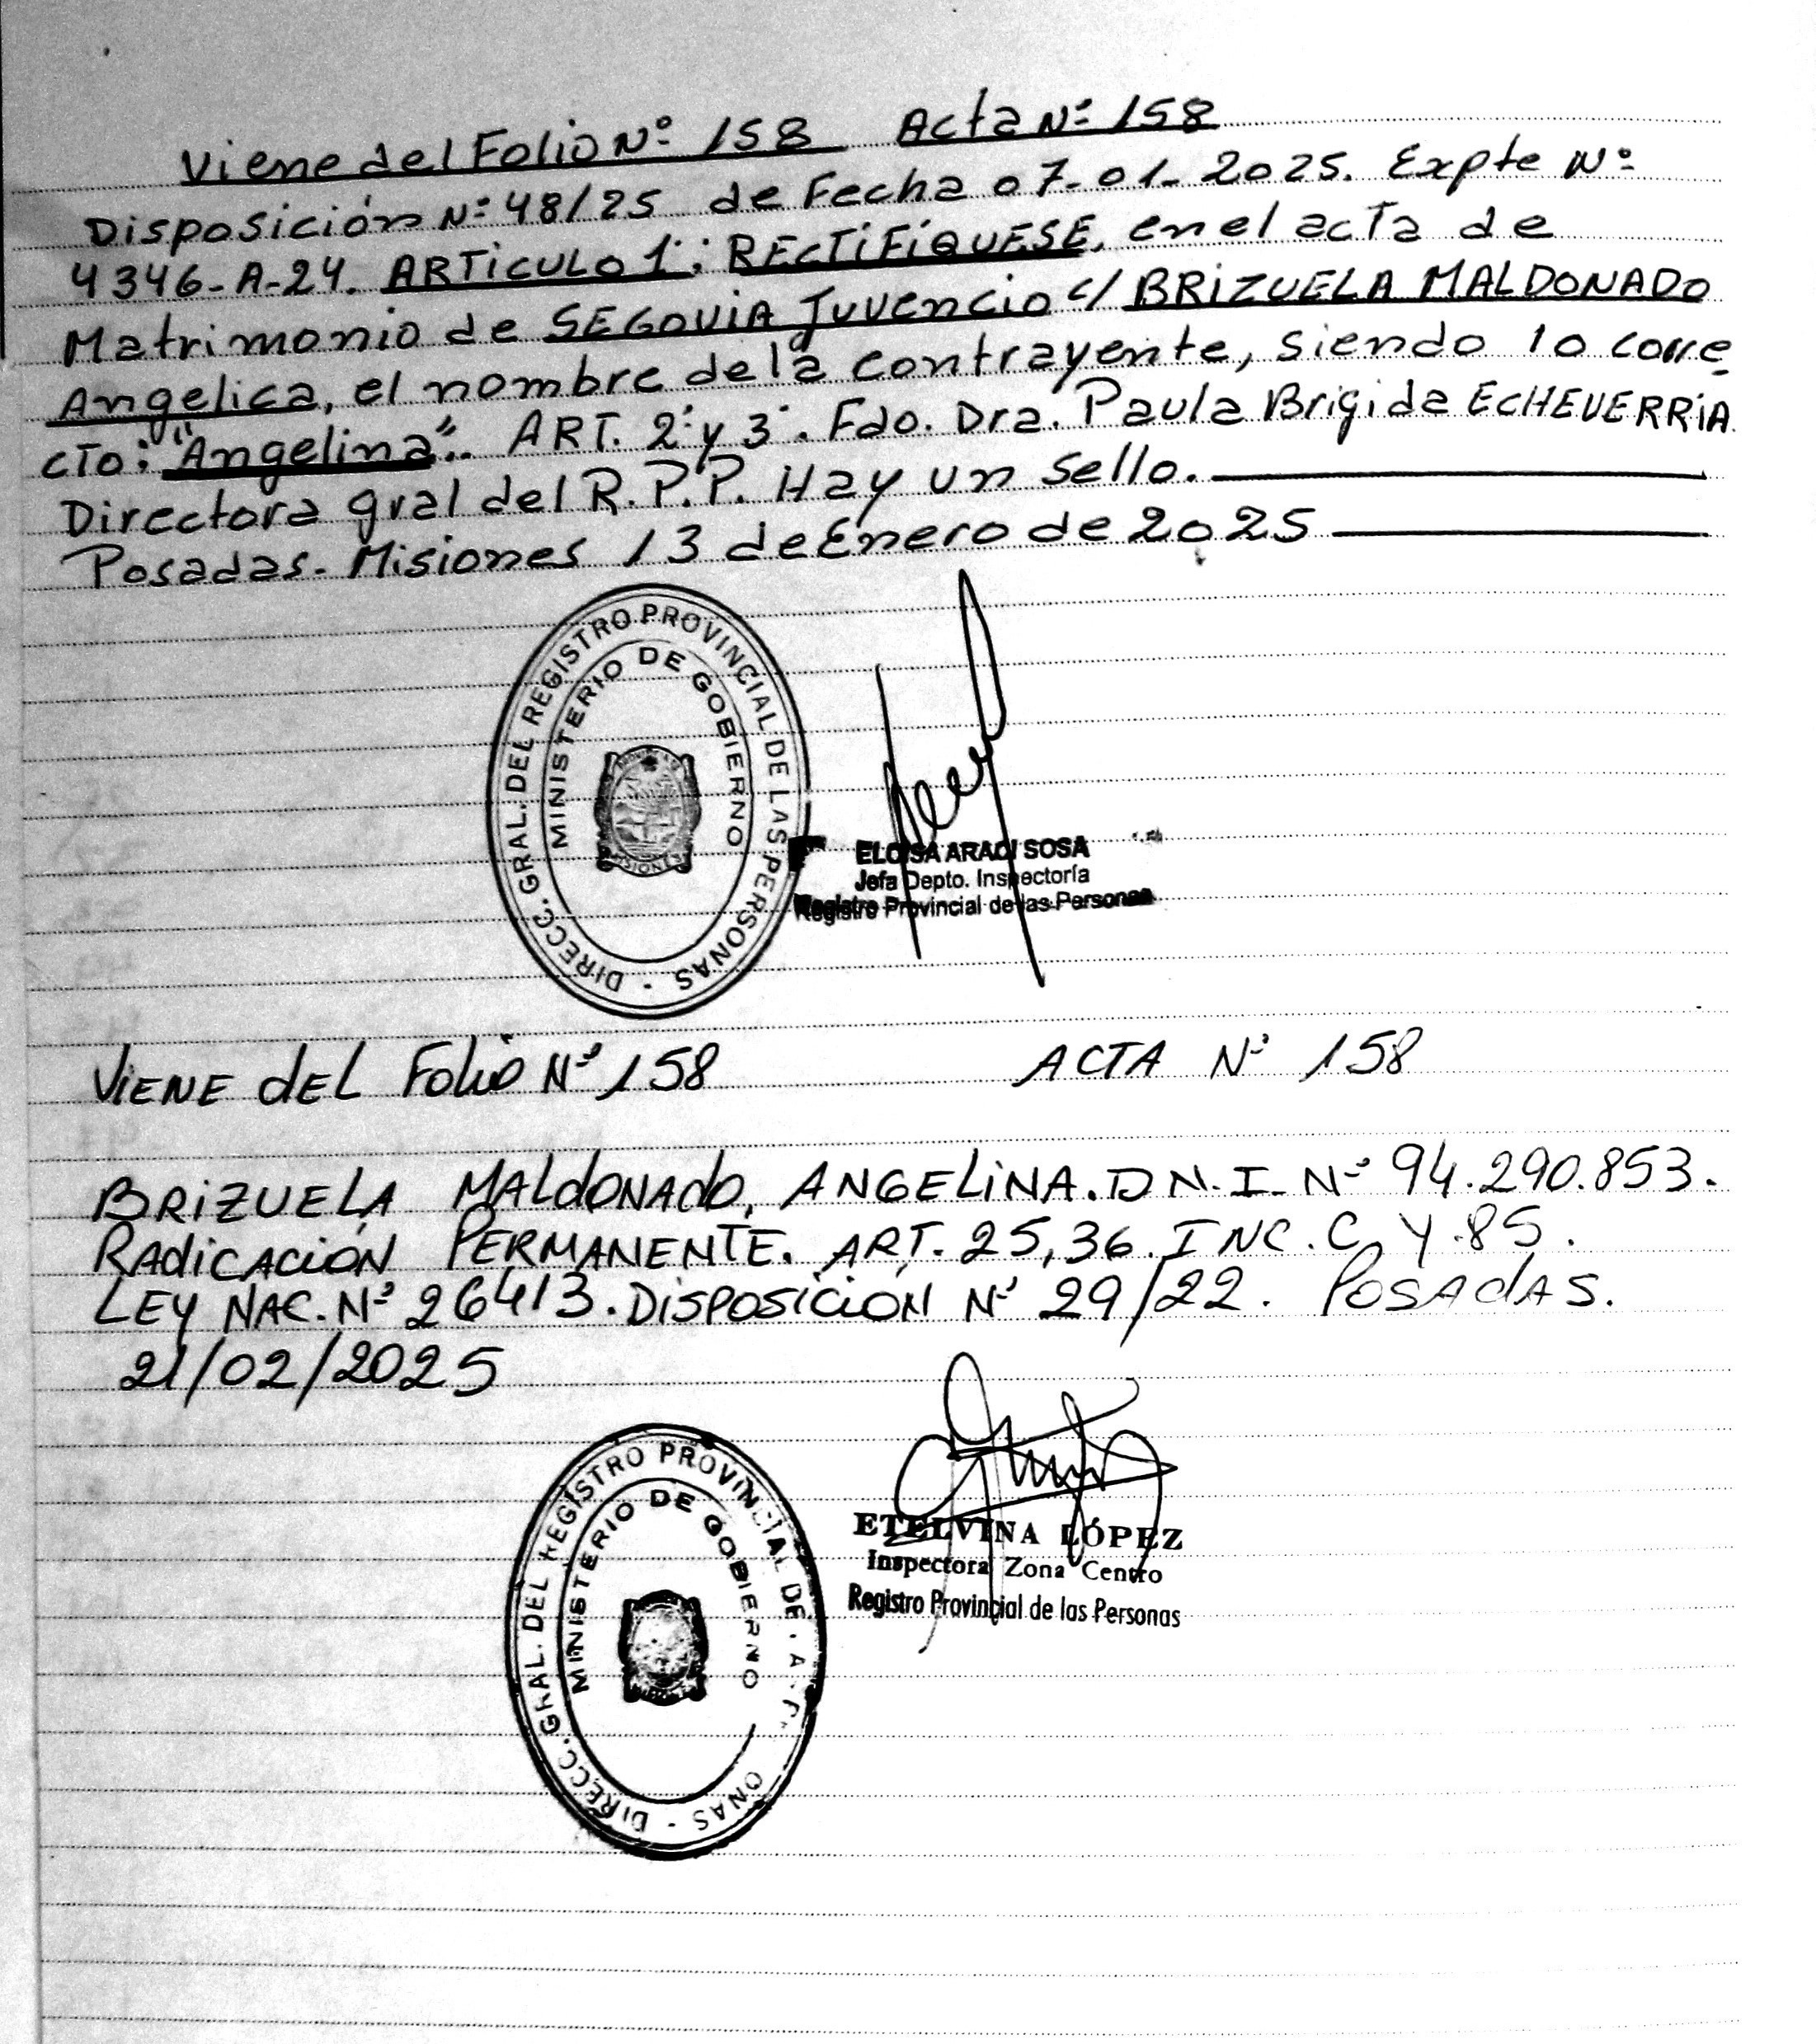 Viene del Folio Nº 158 Acta Nº 158
Disposición Nº 48/25 de Fecha 07-01-2025. Expte Nº
4346-A-24. ARTICULO 1º: RECTIFÍQUESE, en el acta de
Matrimonio de SEGOVIA Juvencio c/ BRIZUELA MALDONADO
Angelica, el nombre de la contrayente, siendo lo corre
cto: "Angelina". ART. 2º y 3º. Fdo. Dra. Paula Brigida ECHEVERRIA
Directora gral del R.P.P. Hay un sello.
Posadas. Misiones 13 de Enero de 2025
DIRECC. GRAL. DEL REGISTRO PROVINCIAL DE LAS PERSONAS -
MINISTERIO DE GOBIERNO
MISIONES
ELOISA ARACI SOSA
Jefa Depto. Inspectoría
Registro Provincial de las Personas
VIENE DEL Folio Nº 158 ACTA Nº 158
BRIZUELA MALDONADO, ANGELINA. D.N.I. Nº 94.290.853.
RADICACIÓN PERMANENTE. ART. 25, 36. INC. C. Y 85.
LEY NAC. Nº 26413. DISPOSICIÓN Nº 29/22. POSADAS.
21/02/2025
DIRECC. GRAL. DEL REGISTRO PROVINCIAL DE
ONAS -
MINISTERIO DE GOBIERNO
ETELVINA LÓPEZ
Inspectora Zona Centro
Registro Provincial de las Personas